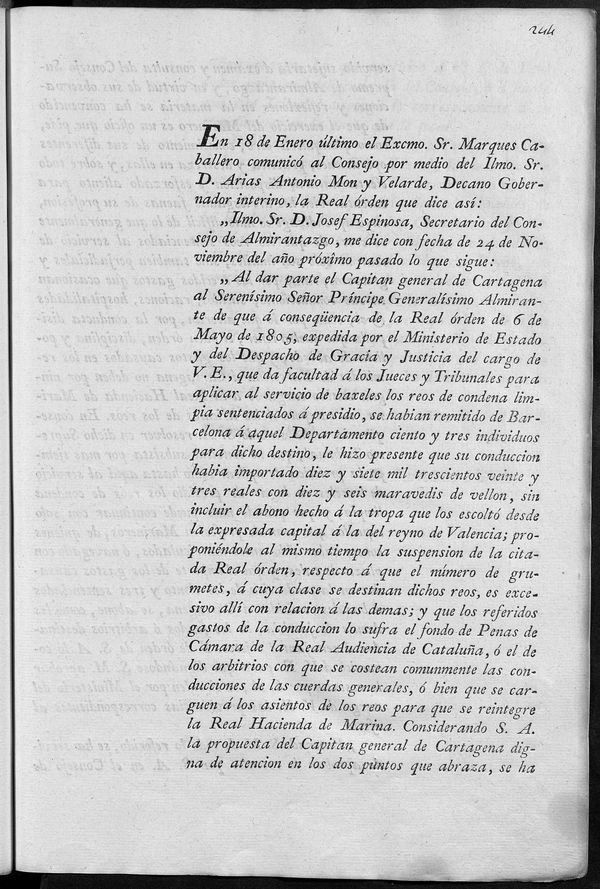 244
En 18 de Enero último el Excmo. Sr. Marques Ca-
ballero comunicó al Consejo por medio del Ilmo. Sr.
D. Arias Antonio Mon y Velarde, Decano Gober-
nador interino, la Real órden que dice así:
„Ilmo. Sr. D. Josef Espinosa, Secretario del Con-
sejo de Almirantazgo, me dice con fecha de 24 de No-
viembre del año próxîmo pasado lo que sigue:
„Al dar parte el Capitan general de Cartagena
al Serenísimo Señor Príncipe Generalísimo Almiran-
te de que á conseqüencia de la Real órden de 6 de
Mayo de 1805, expedida por el Ministerio de Estado
y del Despacho de Gracia y Justicia del cargo de
V.E., que da facultad á los Jueces y Tribunales para
aplicar al servicio de baxeles los reos de condena lim-
pia sentenciados á presidio, se habian remitido de Bar-
celona á aquel Departamento ciento y tres individuos
para dicho destino, le hizo presente que su conduccion
habia importado diez y siete mil trescientos veinte y
tres reales con diez y seis maravedis de vellon, sin
incluir el abono hecho á la tropa que los escoltó desde
la expresada capital á la del reyno de Valencia; pro-
poniéndole al mismo tiempo la suspension de la cita-
da Real órden, respecto á que el número de gru-
metes, á cuya clase se destinan dichos reos, es exce-
sivo allí con relacion á las demas; y que los referidos
gastos de la conduccion lo sufra el fondo de Penas de
Cámara de la Real Audiencia de Cataluña, ó el de
los arbitrios con que se costean comunmente las con-
ducciones de las cuerdas generales, ó bien que se car-
guen á los asientos de los reos para que se reintegre
la Real Hacienda de Marina. Considerando S. A.
la propuesta del Capitan general de Cartagena dig-
na de atencion en los dos puntos que abraza, se ha